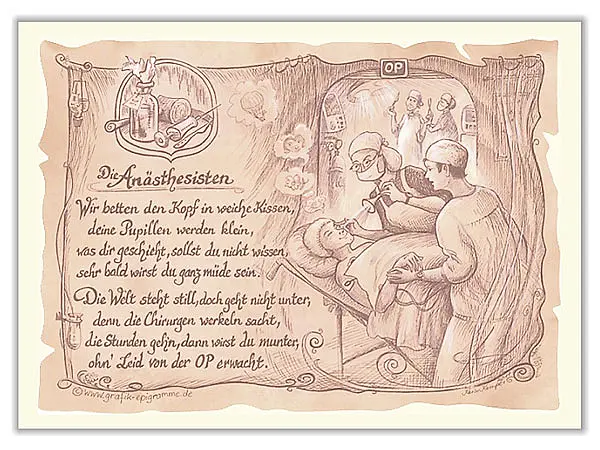 OP
Die Anästhesisten
Wir betten den Kopf in weiche Kissen,
deine Pupillen werden klein,
was dir geschieht, sollst du nicht wissen,
sehr bald wirst du ganz müde sein.
Die Welt steht still, doch geht nicht unter,
denn die Chirurgen werkeln sacht,
die Stunden geh'n, dann wirst du munter,
ohn' Leid von der OP erwacht.
© www.grafik-epigramme.de